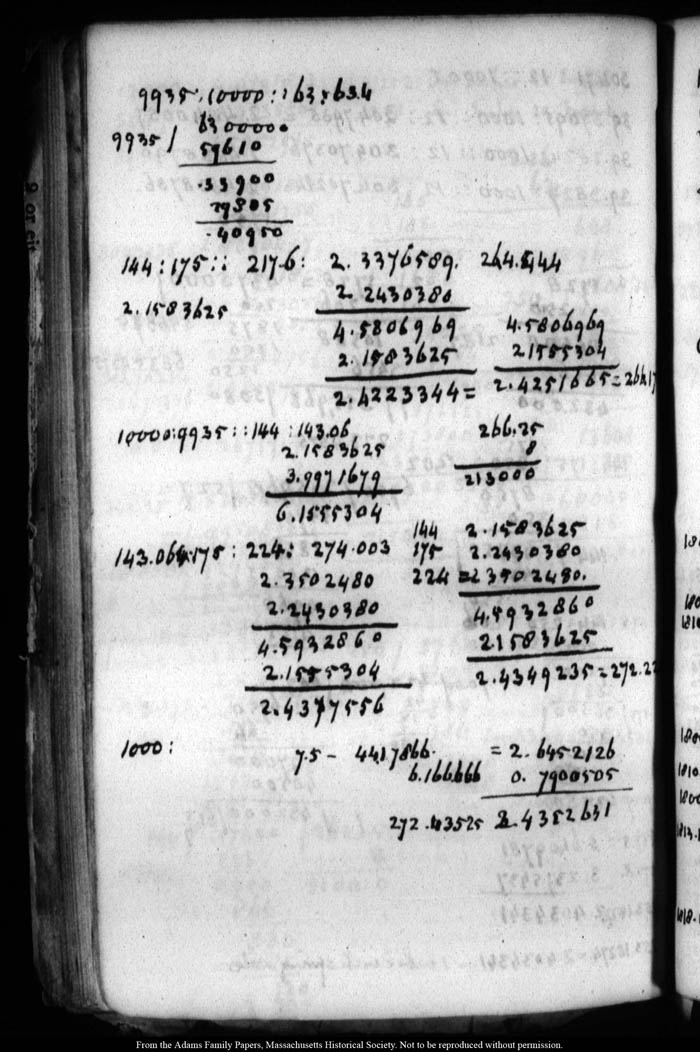 9935:10000::63:63.4
9935 / 630000.
59610
.33900
29805
.40950
144:175:: 217.6: 2.3376589. 264.444
2.1583625 2.2430380
4.5806969 4.5806969
2.1583625 2.1555304
2.4223344= 2.4251665=266.17
10000:9935::144:143.06 266.25
2.1583625 8
3.9971679 213000
6.1555304
144 2.1583625
143.064:175: 224: 274.003 175 2.2430380
2.3502480 224 =2.3502480.
2.2430380
4.5932860 4.5932860
2.1555304 2.1583625
2.4377556 2.4349235=272.22
1000: 7.5 - 441.7866. = 2.6452126
6.166666 0.7900505
272.43525 2.4352631
180
180
1810
180
1810
180
1813.
1818.
From the Adams Family Papers, Massachusetts Historical Society. Not to be reproduced without permission.